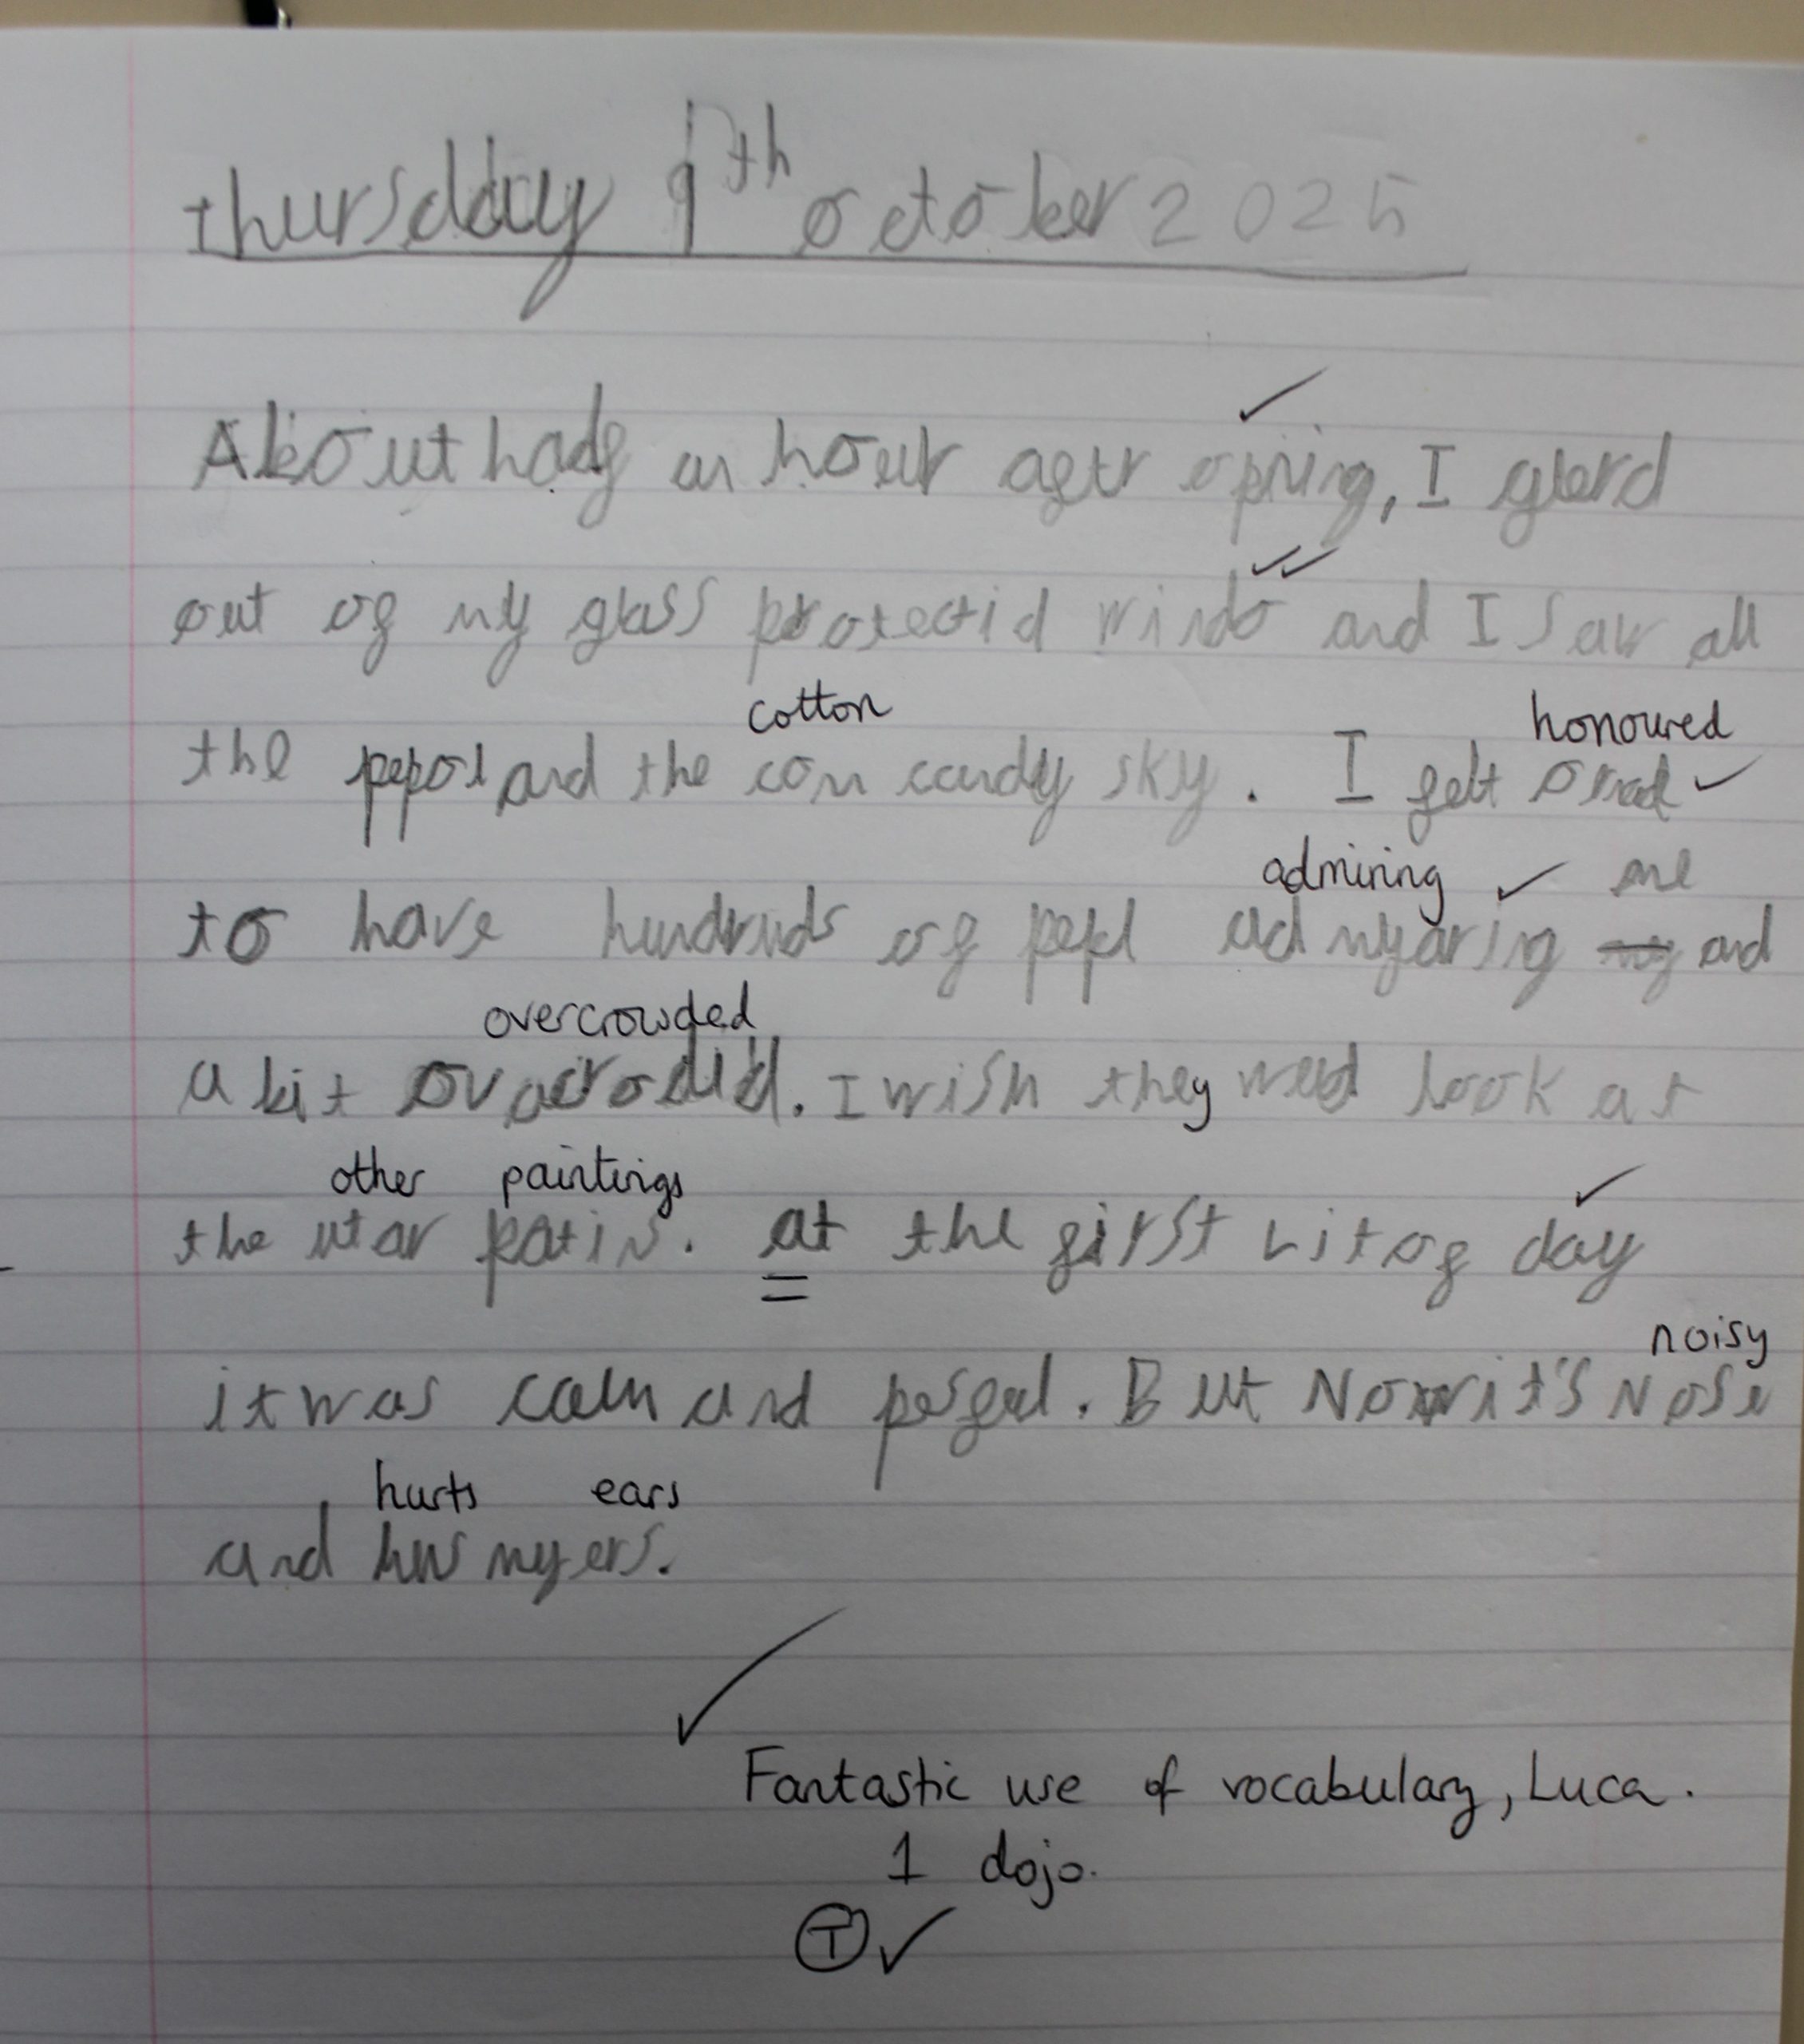 thursday 9th october 2025
About half an hour aftr opning, I glerd
out of my glass protectid windo and I saw all
cotton honoured
the pepol and the con candy sky. I felt onad
admiring me
to have hundruds of pepl admyaring my and
overcrowded
a bit ovacrodid. I wish they wed look at
other paintings
the utar patins. at the first bit of day
noisy
it was calm and pesful. But Now it's Nose
hurts ears
and hus my ers.
Fantastic use of vocabulary, Luca.
1 dojo.
T